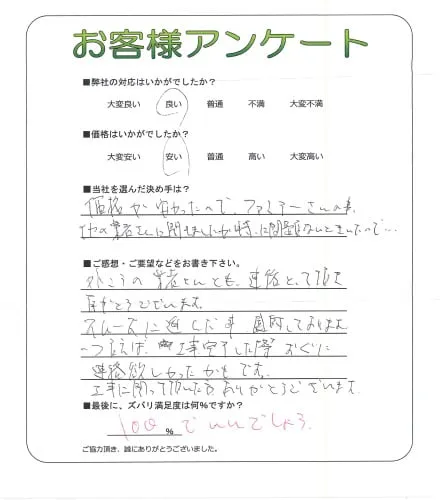 お客様アンケート
■弊社の対応はいかがでしたか？
大変良い 良い 普通 不満 大変不満
■価格はいかがでしたか？
大変安い 安い 普通 高い 大変高い
■当社を選んだ決め手は？
価格が安かったので、ファミリーさんの事、
他の業者さんに聞きましたが特に問題ないときいたので…
■ご感想・ご要望などをお書き下さい。
外こうの業者さんとも、連絡とって頂き
ありがとうございます。
スムーズに進んだ事 感謝しております
一つ言えば、工事完了した際 すぐに
連絡欲しかったかもです。
工事に関って頂いた方ありがとうございます
■最後に、ズバリ満足度は何％ですか？
100 ％ でいいでしょう。
ご協力頂き、誠にありがとうございました。